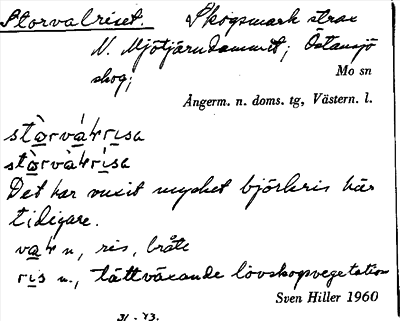 Storvalriset. Skogsmark strax
N. Mjötjärndammet; Östansjö
skog;
Mo sn
Ångerm. n. doms. tg, Västern. l.
stòrvá4risa
stòrvà4rísa
Det har vuxit mycket björkris här
tidigare.
va4 n, ris, bråte
ris n., tättväxande lövskogsvegetation
Sven Hiller 1960